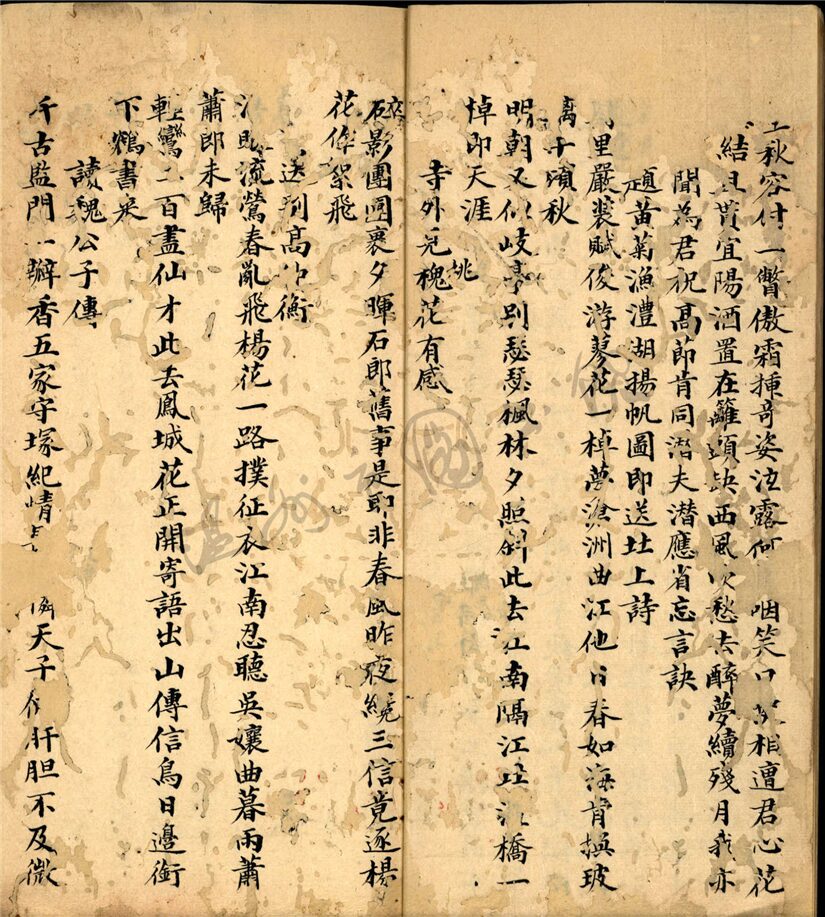 秋容付一瞥傲霜揷奇姿泣露何咽笑口相遭君心花
結且貰宜陽酒置在籬頭缺西風吹愁去醉夢續殘月我亦
聞為君祝高節肯同潜夫潜應省忘言訣
題黄菊漁澧湖揚帆圖即送址上詩
里嚴裝賦俊游蓼花一棹夢滄洲曲江他日春如海肯換玻
璃千頃秋
明朝又似岐亭别瑟瑟楓林夕照斜此去江南隔江橋一
棹即天涯
寺外見桃槐花有感
碎影團圓裏夕暉石郎舊事是耶非春風昨夜纔三信竟逐楊
花作絮飛
送高衡
流鶯春亂飛楊花一路撲征衣江南忍聽吳孃曲暮雨蕭
蕭郎未歸
輕鸞二百盡仙才此去鳳城花正開寄語出山傳信鳥日邊銜
下鶴書來
讀魏公子傳
千古監門一瓣香五家守塚紀情天子肝胆不及微